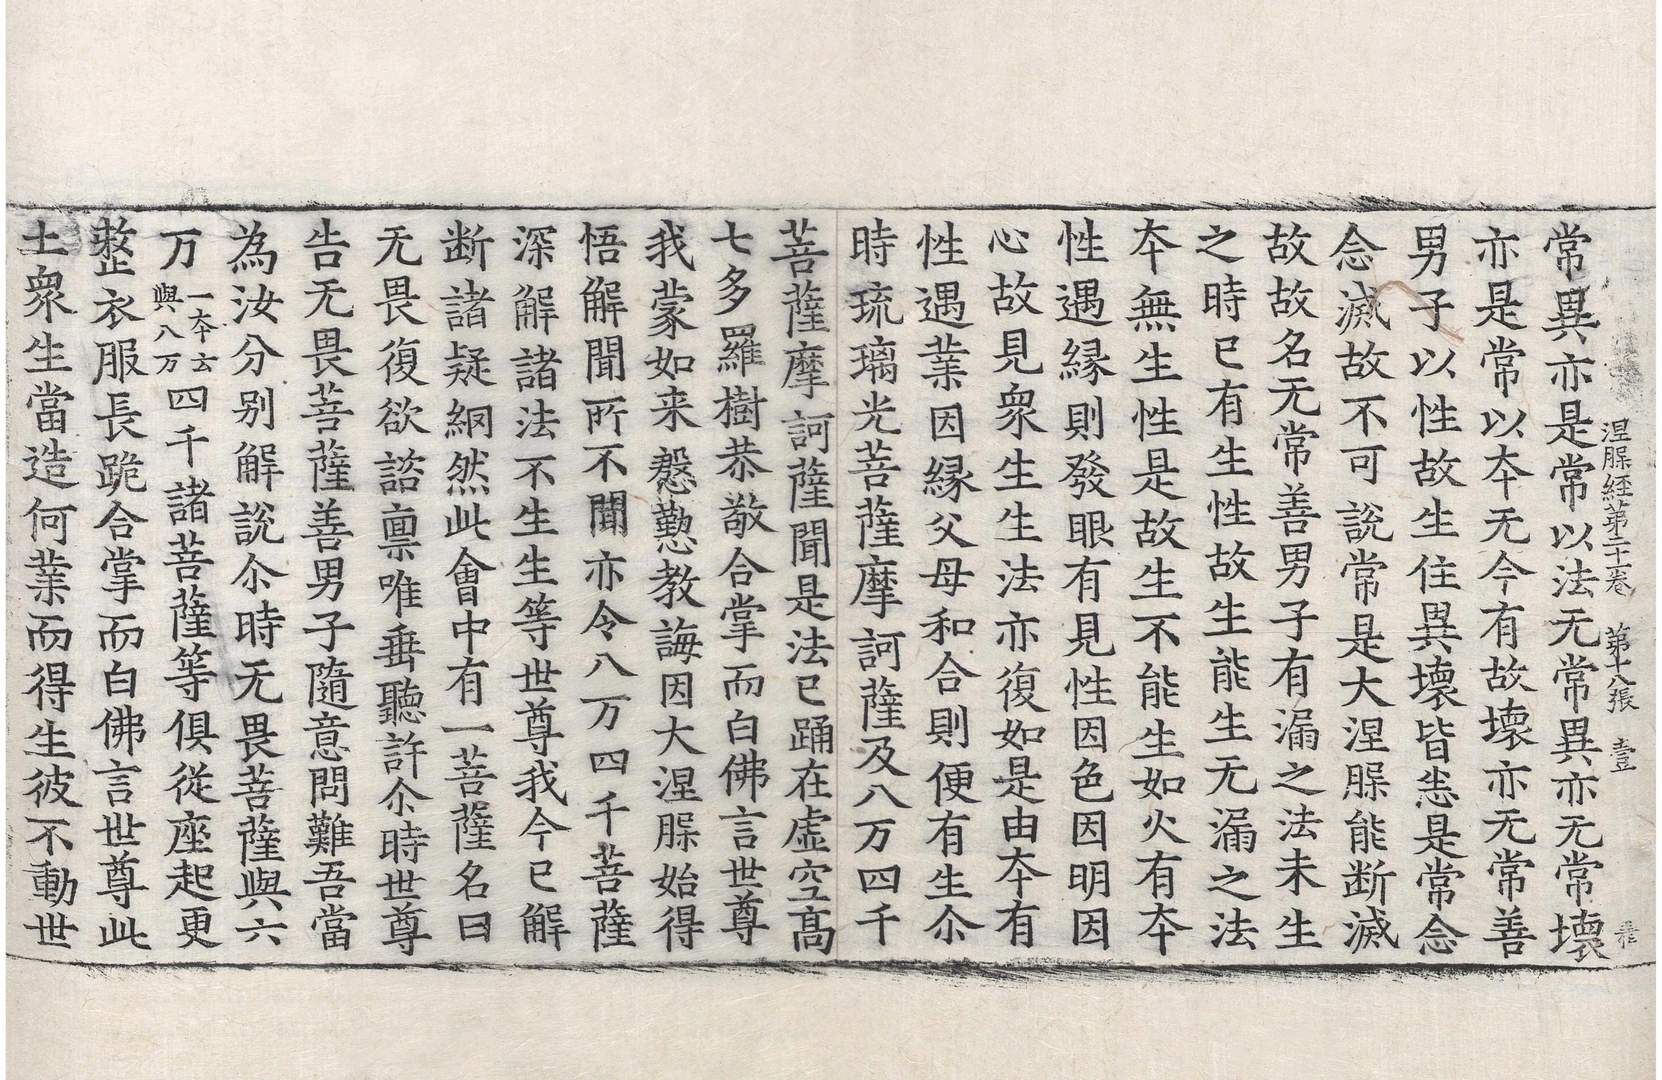 涅槃経第二十一卷　第十八張　壹
常異亦是常以法无常異亦无常壞
亦是常以夲无今有故壞亦无常善
男子以性故生住異壞皆悉是常念
念滅故不可說常是大涅槃能断滅
故故名无常善男子有漏之法未生
之時已有生性故生能生无漏之法
夲無生性是故生不能生如火有夲
性遇縁則發眼有見性因色因明因
心故見衆生生法亦復如是由夲有
性遇業因縁父母和合則便有生尒
時琉璃光菩薩摩訶薩及八万四千
菩薩摩訶薩聞是法已踊在虚空髙
七多羅樹恭敬合掌而白佛言世尊
我蒙如来慇懃教誨因大涅槃始得
悟解聞所不聞亦令八万四千菩薩
深解諸法不生生等世尊我今已解
断諸疑網然此會中有一菩薩名曰
无畏復欲諮禀唯垂聽許尒時世尊
告无畏菩薩善男子隨意問難吾當
為汝分别解說尒時无畏菩薩與六
万一夲云與八万四千諸菩薩等俱從座起更
整衣服長跪合掌而白佛言世尊此
土衆生當造何業而得生彼不動世